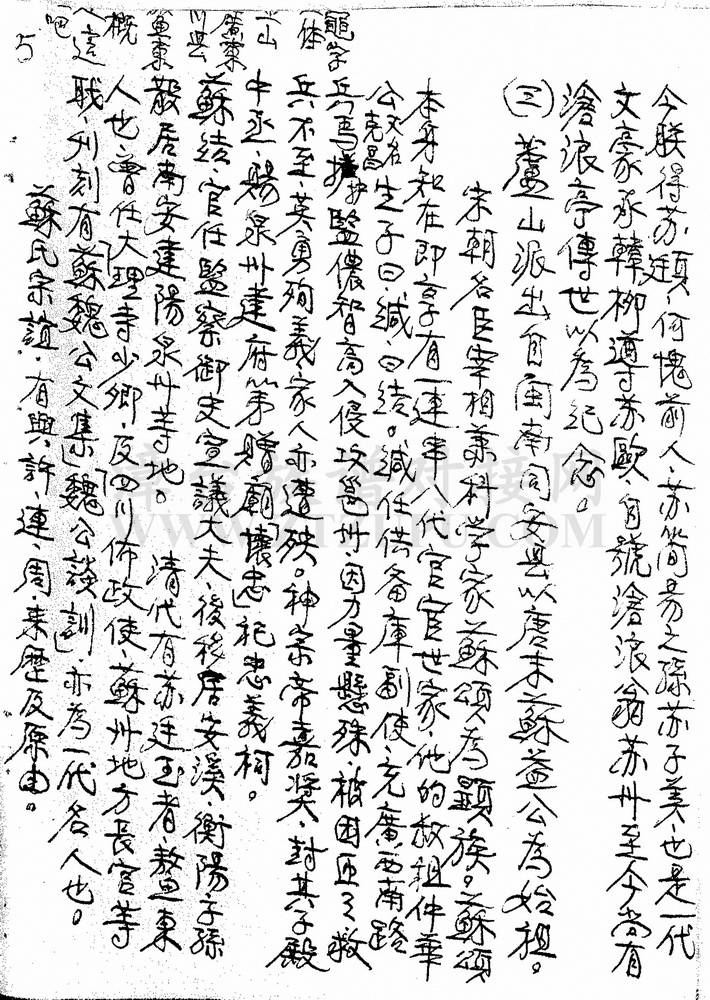 今朕得苏頲，何愧前人，苏简易之孫苏子美，也是一代
文豪承韓柳，遵苏歐，自號滄浪翁苏州至今尚有
滄浪亭傳世以為紀念。
(三)蘆山派出自闽南同安县以唐末蘇益公為始祖。
宋朝名臣宰相兼科学家蘇頌為顯族。蘇頌
本身知在即享有一連串八代官宦世家，他的叔祖仲華
公文名克昌生子曰，緘，曰结。緘任供备庫副使，充廣西南路
兵馬擁护監儂智高入侵攻邕州，因力量懸殊，被困臣之救
兵不至，英勇殉義，家人亦遭殃。神宗帝嘉奨，封其子殿
中丞，賜泉州建府以弟贈廟「懷忠」祀忠義祠。
蘇结，官任監察御史宣議大夫，後移居安溪，衡陽子孫
散居南安建陽泉州等地。 清代有苏廷玉者，鰲東
人也，曾任大理寺少卿，及四川佈政使，蘇州地方長官等
职，刋刻有「蘇魏公文集」「魏公談訓」，亦為一代名人也。
蘇氏宗誼，有與許，連，周，来歷及原由。
5